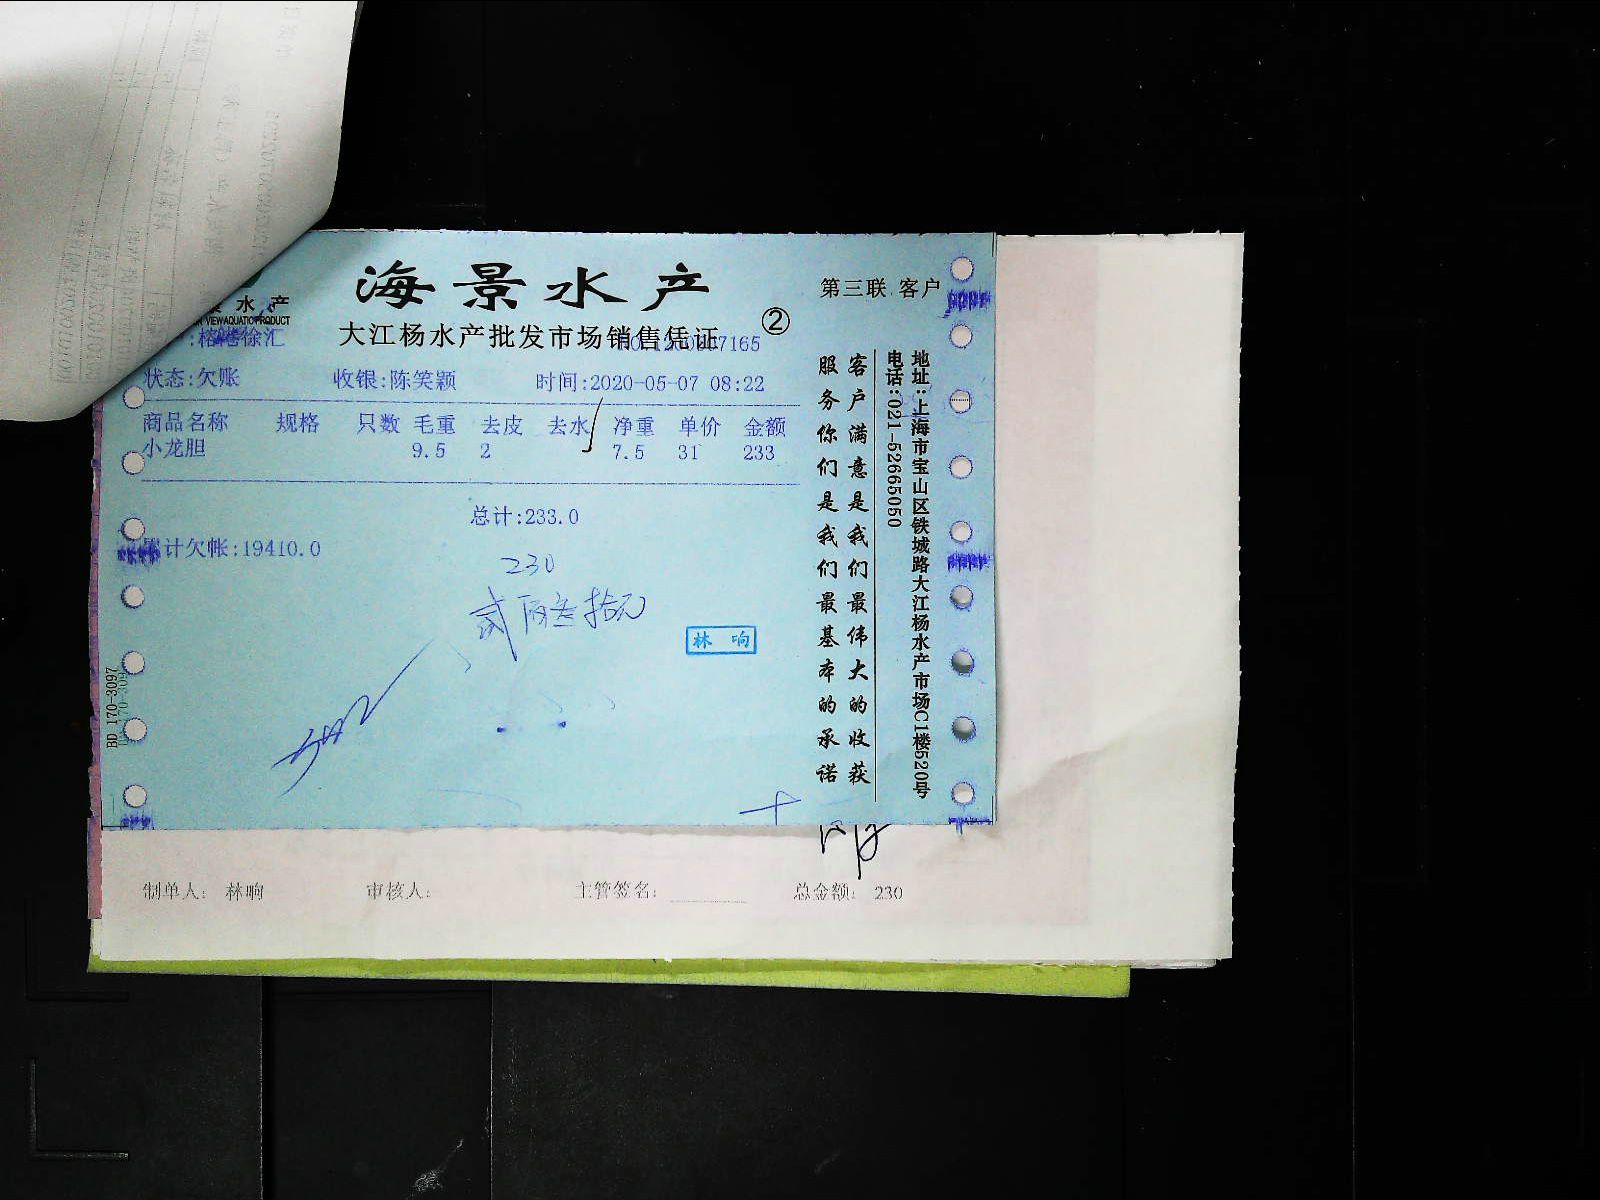 海景水产
第三联 客户
水产
VIEW AQUATIC PRODUCT
大江杨水产批发市场销售凭证
②
:榕港徐汇
7165
状态:欠账 收银:陈笑颖 时间:2020-05-07 08:22
商品名称 规格 只数 毛重 去皮 去水 净重 单价 金额
小龙胆 9.5 2 7.5 31 233
总计:233.0
累计欠帐:19410.0
230
贰佰叁拾元
林响
BD 170-3097
客户满意是我们最伟大的收获
服务你们是我们最基本的承诺
地址:上海市宝山区铁城路大江杨水产市场C1楼520号
电话:021-52665050
制单人: 林响 审核人: 主管签名: 总金额: 230